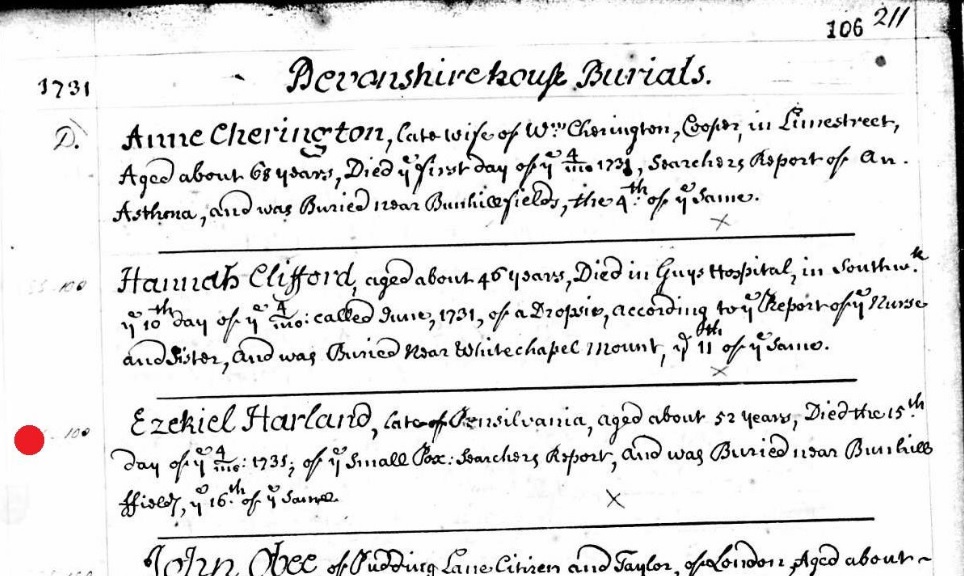 106 211
1731 Devonshire house Burials.
D. Anne Cherington, late wife of Wm Cherington, Cooper, in Limestreet,
Aged about 68 years, Died ye first day of ye 4/mo 1731, Searchers Report of An
Asthma, and was Buried near Bunhillfields, the 4th of ye Same.
Hannah Clifford, aged about 46 years, Died in Guys Hospital, in Southwk
ye 10th day of ye 4/mo: called June, 1731, of a Dropsie, according to ye Report of ye Nurse
and Sister, and was Buried Near Whitechapel Mount, ye 11th of ye Same.
Ezekiel Harland, late of Pensilvania, aged about 52 years, Died the 15th
day of ye 4/mo: 1731; of ye Small Pox: Searchers Report, and was Buried near Bunhill
ffields, ye 16th of ye Same
John Obee of Pudding Lane Citizen and Taylor, of London, Aged about